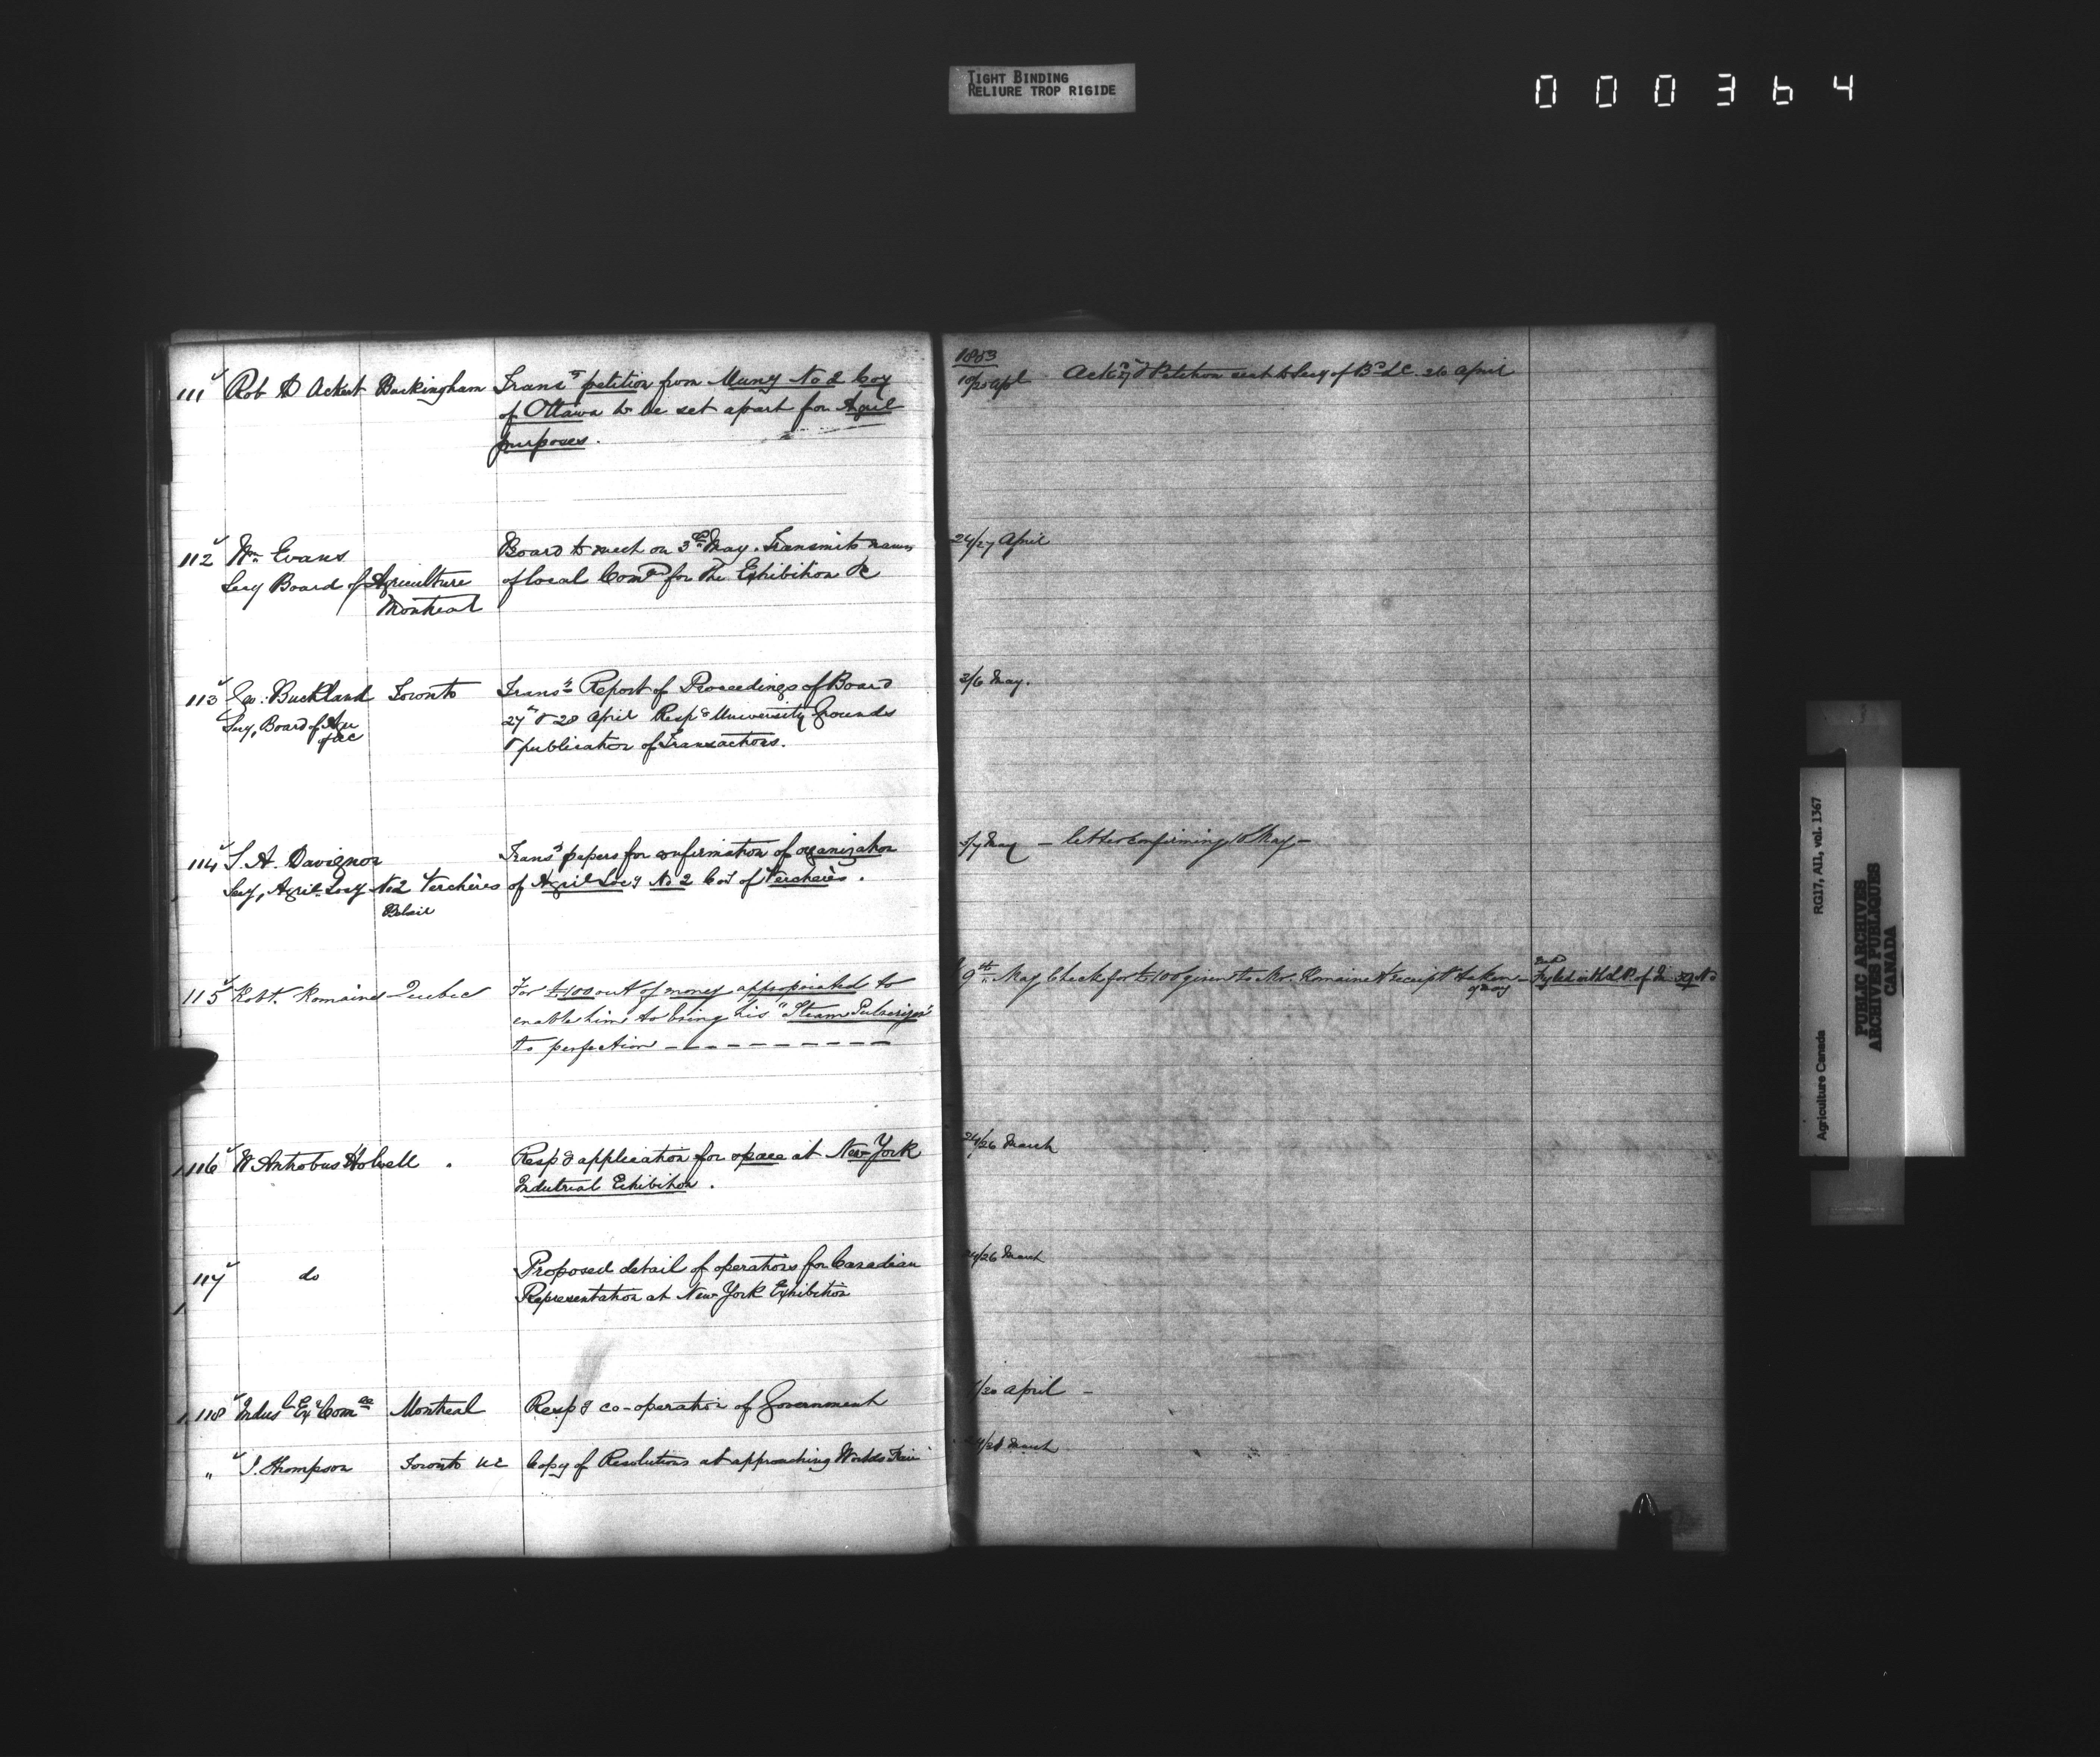 TIGHT BINDING
RELIURE TROP RIGIDE
000364
111 Rob A Ackert Buckingham Trans petition from Muny No 2 Coy
of Ottawa to be set apart for Agril
purposes.
112 Wm Evans Board to meet on 3rd May. Transmits names
Secy Board of Agriculture of local Comtee for the Exhibition &c
Montreal
113 Geo: Buckland Toronto Trans Report of Proceedings of Board
Secy, Board of Agr 27th & 28 April Respg University Grounds
of UC & publication of Transactions.
114 S. A. Davignon Trans papers for confirmation of organization
Secy, Agril Socy No 2 Verchères of Agril Socy No 2 Coy of Verchères.
Belœil
115 Robt. Romaine Quebec For £100 out of money appropriated to
enable him to bring his "Steam Pulverizer"
to perfection - - - - - - - - - -
116 W Antrobus Holwell . Respg application for space at New York
Industrial Exhibition .
117 do Proposed detail of operations for Canadian
Representation at New York Exhibition
118 Indusl Ex Comee Montreal Respg co-operation of Government
" J. Thompson Toronto UC Copy of Resolutions at approaching Worlds Fair
1853
19/20 Apl Ackg & Petition sent to Secy of Bd LC. 26 April
24/27 April
2/6 May.
5/7 May - letter confirming 10 May -
9th May Check for £100 given to Mr. Romaine & receipt taken -
9 May
24/26 March
24/26 March
/20 April -
/26 March
Agriculture Canada RG17, AII, vol. 1367
PUBLIC ARCHIVES
ARCHIVES PUBLIQUES
CANADA